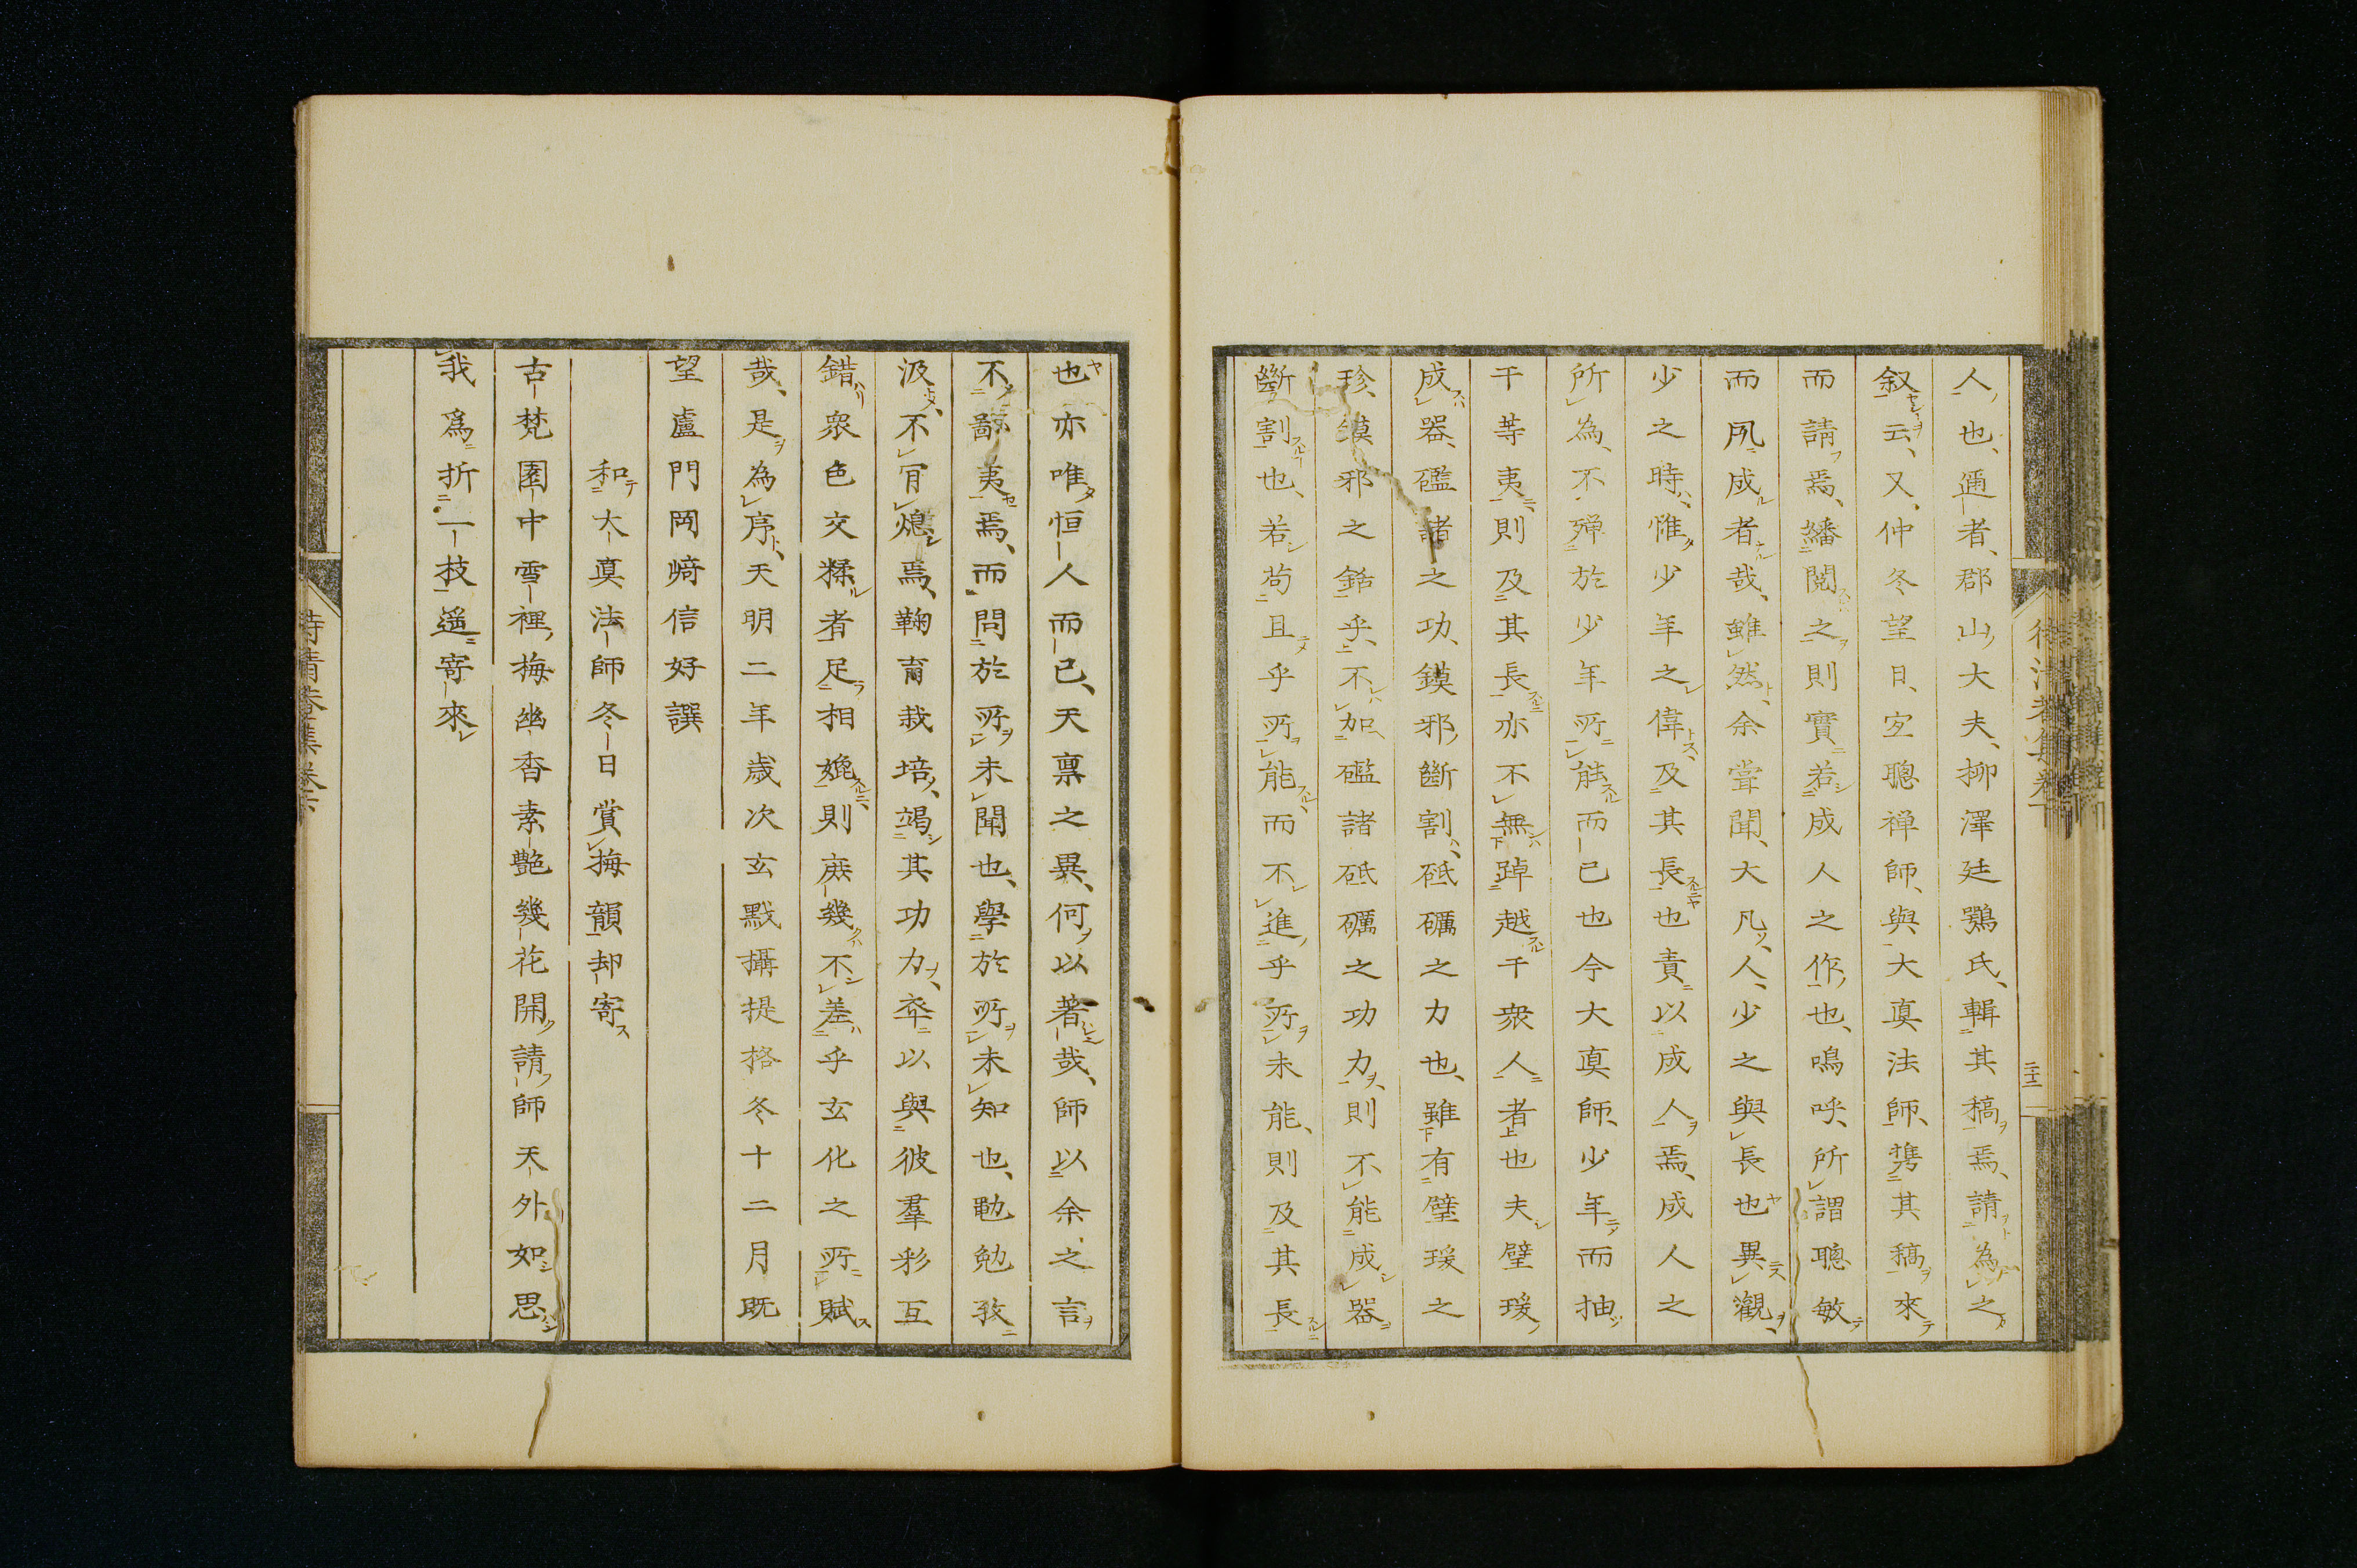 人也、邇者、郡山大夫、柳澤廷鶚氏、輯其稿焉、請為之
叙云、又、仲冬望日、㝎聰禅師、與大眞法師、携其稿來
而請焉、繙閲之則實若成人之作也、鳴呼、所謂聰敏
而夙成者哉、雖然、余甞聞、大凡人、少之與長也異觀、
少之時、惟少年之偉、及其長也責以成人焉、成人之
所為、不殫於少年所能而已也今大眞師、少年而抽
千等夷則及其長亦不無踔越千衆人者也夫璧瑗
成器、礛諸之功、鏌邪断割、砥礪之力也、雖有璧瑗之
珍、鏌邪之銛乎、不加礛諸砥礪之功力、則不能成器
斷割也、若苟且乎所能而不進乎所未能、則及其長
也亦唯恒人而已、天禀之異、何以著哉、師以余之言
不鄙夷焉、而問於所未聞也、學於所未知也、勄勉孜
汲不、肎熄焉、鞠育栽培、竭其功力、卒以與彼羣彩互
錯衆色交糅者足相婉則庶幾不差乎玄化之所賦
哉、是為序、天明二年歳次玄黓攝提格冬十二月既
望盧門岡﨑信好譔
和大眞法師冬日賞梅韻却寄
古梵園中雪裡梅幽香素艶幾花開請師天外如思
我爲折一技遥寄來
二十二